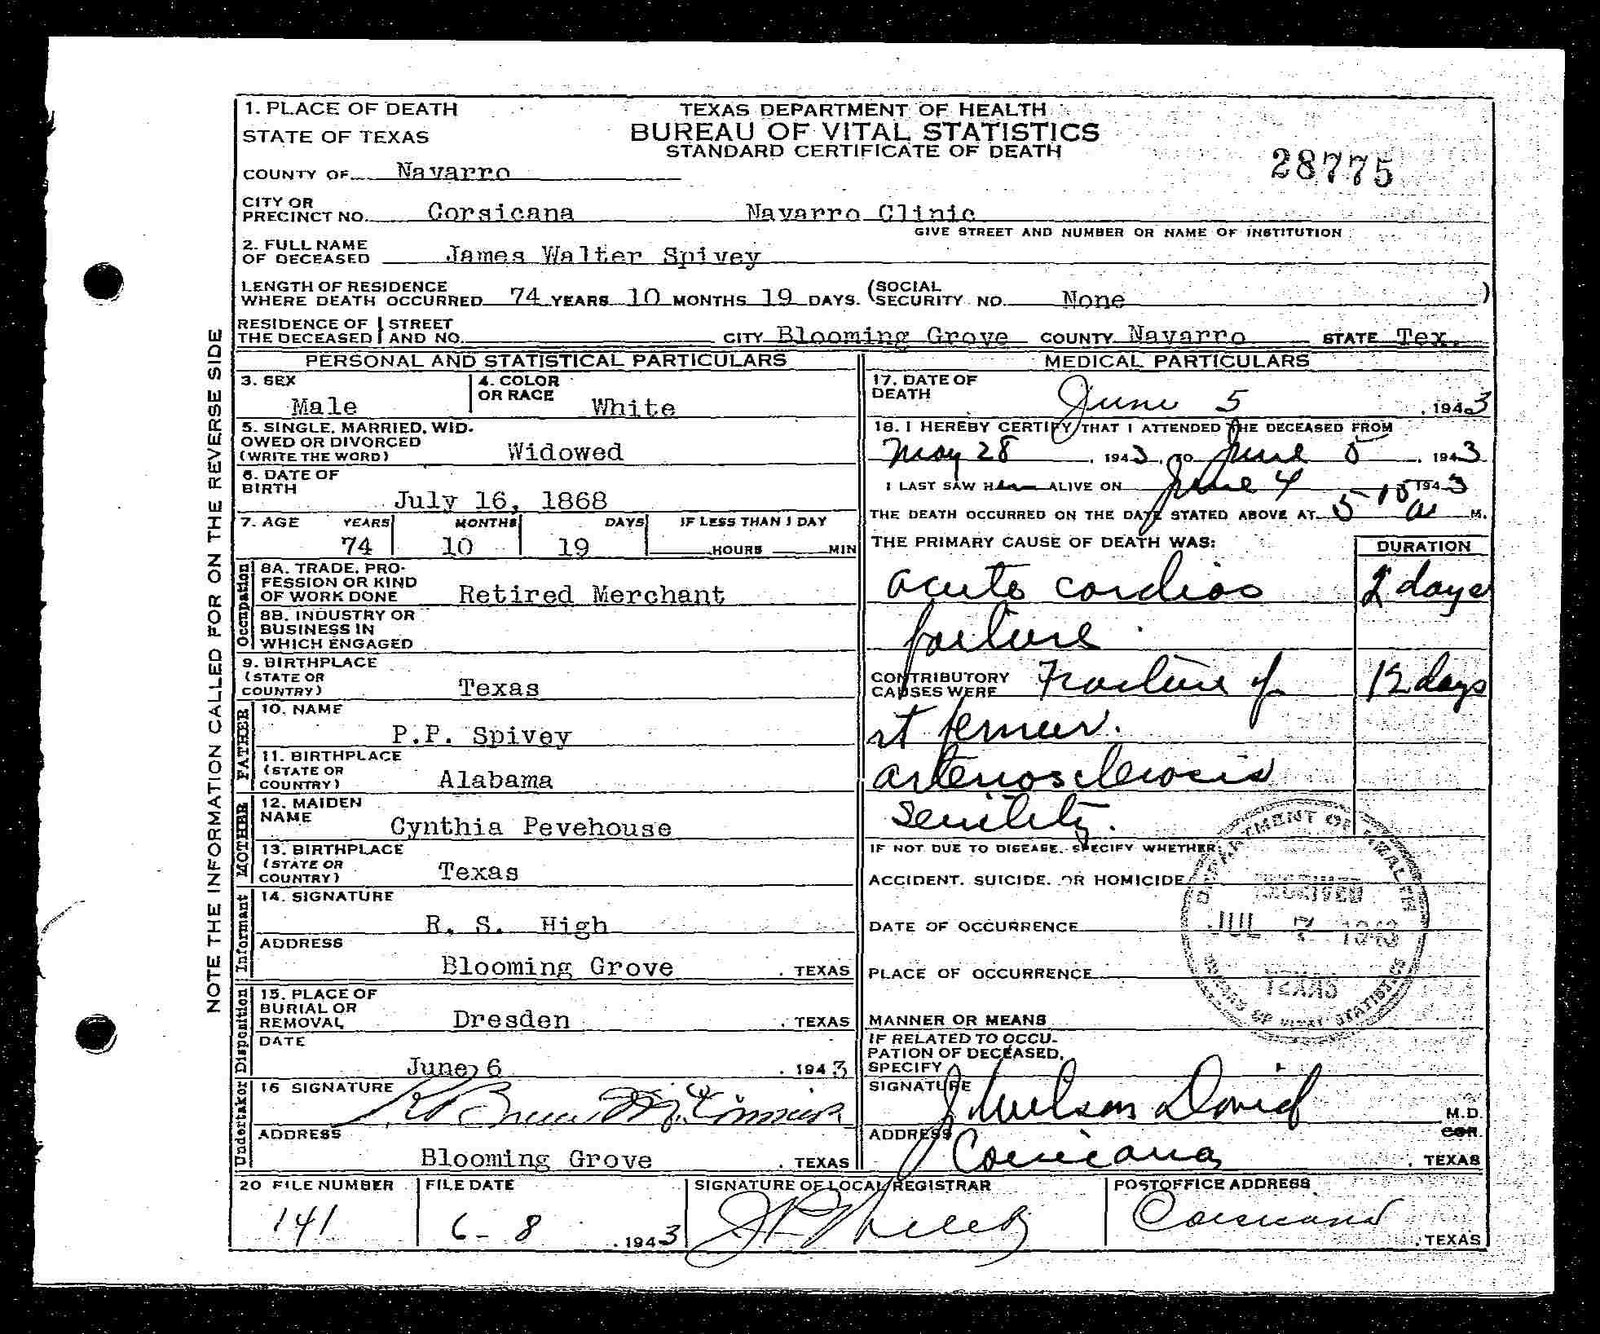 1. PLACE OF DEATH
STATE OF TEXAS
TEXAS DEPARTMENT OF HEALTH
BUREAU OF VITAL STATISTICS
STANDARD CERTIFICATE OF DEATH
28775
COUNTY OF Navarro
CITY OR PRECINCT NO. Corsicana Navarro Clinic
GIVE STREET AND NUMBER OR NAME OF INSTITUTION
2. FULL NAME OF DECEASED James Walter Spivey
LENGTH OF RESIDENCE WHERE DEATH OCCURRED 74 YEARS 10 MONTHS 19 DAYS. (SOCIAL SECURITY NO. None )
RESIDENCE OF THE DECEASED STREET AND NO. CITY Blooming Grove COUNTY Navarro STATE Tex.
NOTE THE INFORMATION CALLED FOR ON THE REVERSE SIDE
PERSONAL AND STATISTICAL PARTICULARS
3. SEX Male
4. COLOR OR RACE White
5. SINGLE, MARRIED, WIDOWED OR DIVORCED (WRITE THE WORD) Widowed
6. DATE OF BIRTH July 16, 1868
7. AGE YEARS MONTHS DAYS IF LESS THAN 1 DAY
74 10 19 HOURS MIN
Occupation
8A. TRADE, PROFESSION OR KIND OF WORK DONE Retired Merchant
8B. INDUSTRY OR BUSINESS IN WHICH ENGAGED
9. BIRTHPLACE (STATE OR COUNTRY) Texas
FATHER
10. NAME P.P. Spivey
11. BIRTHPLACE (STATE OR COUNTRY) Alabama
MOTHER
12. MAIDEN NAME Cynthia Pevehouse
13. BIRTHPLACE (STATE OR COUNTRY) Texas
Informant
14. SIGNATURE R. S. High
ADDRESS Blooming Grove . TEXAS
Disposition
15. PLACE OF BURIAL OR REMOVAL Dresden . TEXAS
DATE June 6 . 1943
Undertaker
16 SIGNATURE
ADDRESS Blooming Grove . TEXAS
MEDICAL PARTICULARS
17. DATE OF DEATH June 5 . 1943
18. I HEREBY CERTIFY THAT I ATTENDED THE DECEASED FROM
May 28 . 1943, TO June 5 . 1943
I LAST SAW H ALIVE ON June 4 1943
THE DEATH OCCURRED ON THE DATE STATED ABOVE AT 5 15 a M.
THE PRIMARY CAUSE OF DEATH WAS: DURATION
acute cardiac 2 days
failure
CONTRIBUTORY CAUSES WERE Fracture of 12 days
rt femur.
arteriosclerosis
Senility.
IF NOT DUE TO DISEASE, SPECIFY WHETHER
ACCIDENT, SUICIDE, OR HOMICIDE
DATE OF OCCURRENCE
PLACE OF OCCURRENCE
MANNER OR MEANS
IF RELATED TO OCCUPATION OF DECEASED, SPECIFY
DEPARTMENT OF HEALTH
RECEIVED
JUL 7 1943
TEXAS
BUREAU OF VITAL STATISTICS
SIGNATURE J Wilson David M.D. COR.
ADDRESS Corsicana . TEXAS
20 FILE NUMBER 141
FILE DATE 6-8 . 1943
SIGNATURE OF LOCAL REGISTRAR
POSTOFFICE ADDRESS Corsicana . TEXAS